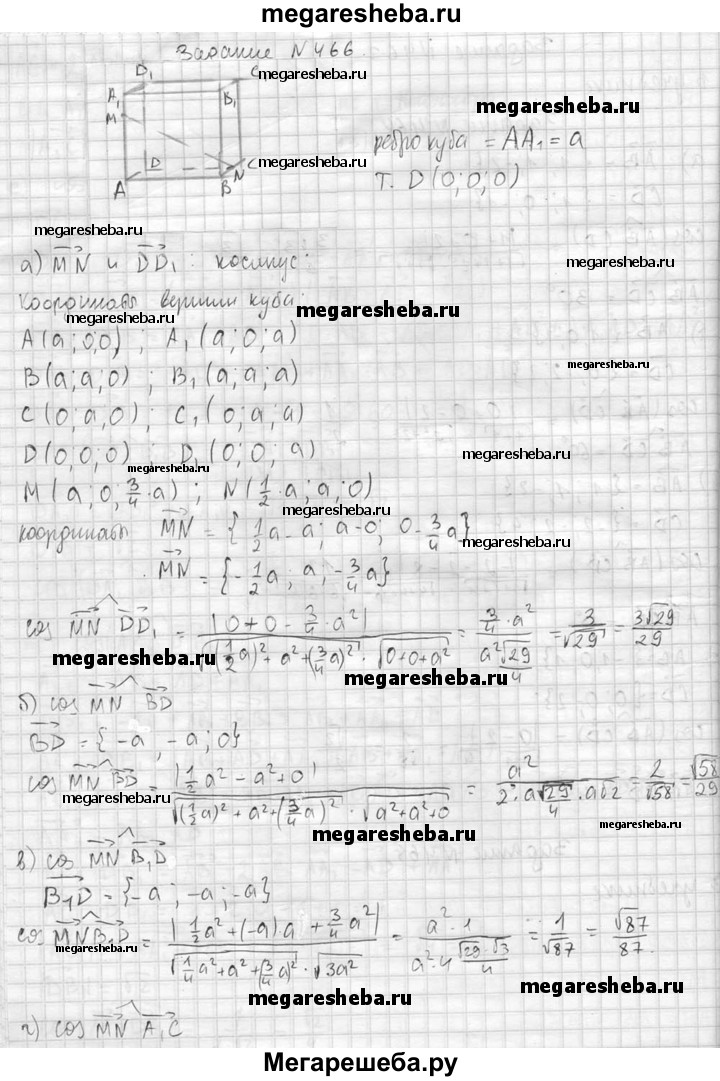 megaresheba.ru
Задание N466
D₁ C megaresheba.ru
A₁ B₁
M megaresheba.ru
ребро куба = AA₁ = a
D C megaresheba.ru
т. D(0;0;0)
A B N
megaresheba.ru
а) MN и DD₁: косинус:
megaresheba.ru
Координаты вершин куба:
megaresheba.ru
A(a;0;0) ; A₁(a;0;a)
megaresheba.ru
B(a;a;0) ; B₁(a;a;a)
megaresheba.ru
C(0;a,0) ; C₁(0;a;a)
D(0;0;0) ; D₁(0;0;a)
megaresheba.ru
megaresheba.ru
M(a;0;3/4·a) ; N(1/2·a;a;0)
megaresheba.ru
координаты MN = {1/2a-a; a-0; 0-3/4a}
megaresheba.ru
MN = {-1/2a; a; -3/4a}
cos MN DD₁ = |0+0-3/4·a²| / √((1/2a)²+a²+(3/4a)²)·√(0+0+a²) = 3/4·a² / a²√29/4 = 3/√29 = 3√29/29
megaresheba.ru
megaresheba.ru
б) cos MN BD
BD = {-a, -a; 0}
cos MN BD = |1/2a²-a²+0| / √((1/2a)²+a²+(3/4a)²)·√(a²+a²+0) = a² / 2·a√29/4·a√2 = 2/√58 = √58/29
megaresheba.ru
megaresheba.ru
megaresheba.ru
в) cos MN B₁D
B₁D = {-a; -a; -a}
cos MN B₁D = |1/2a²+(-a)a+3/4a²| / √(1/4a²+a²+(3/4a)²)·√3a² = a²·1 / a²·4 √29·√3/4 = 1/√87 = √87/87.
megaresheba.ru
megaresheba.ru
г) cos MN A₁C
megaresheba.ru
Мегарешеба.ру